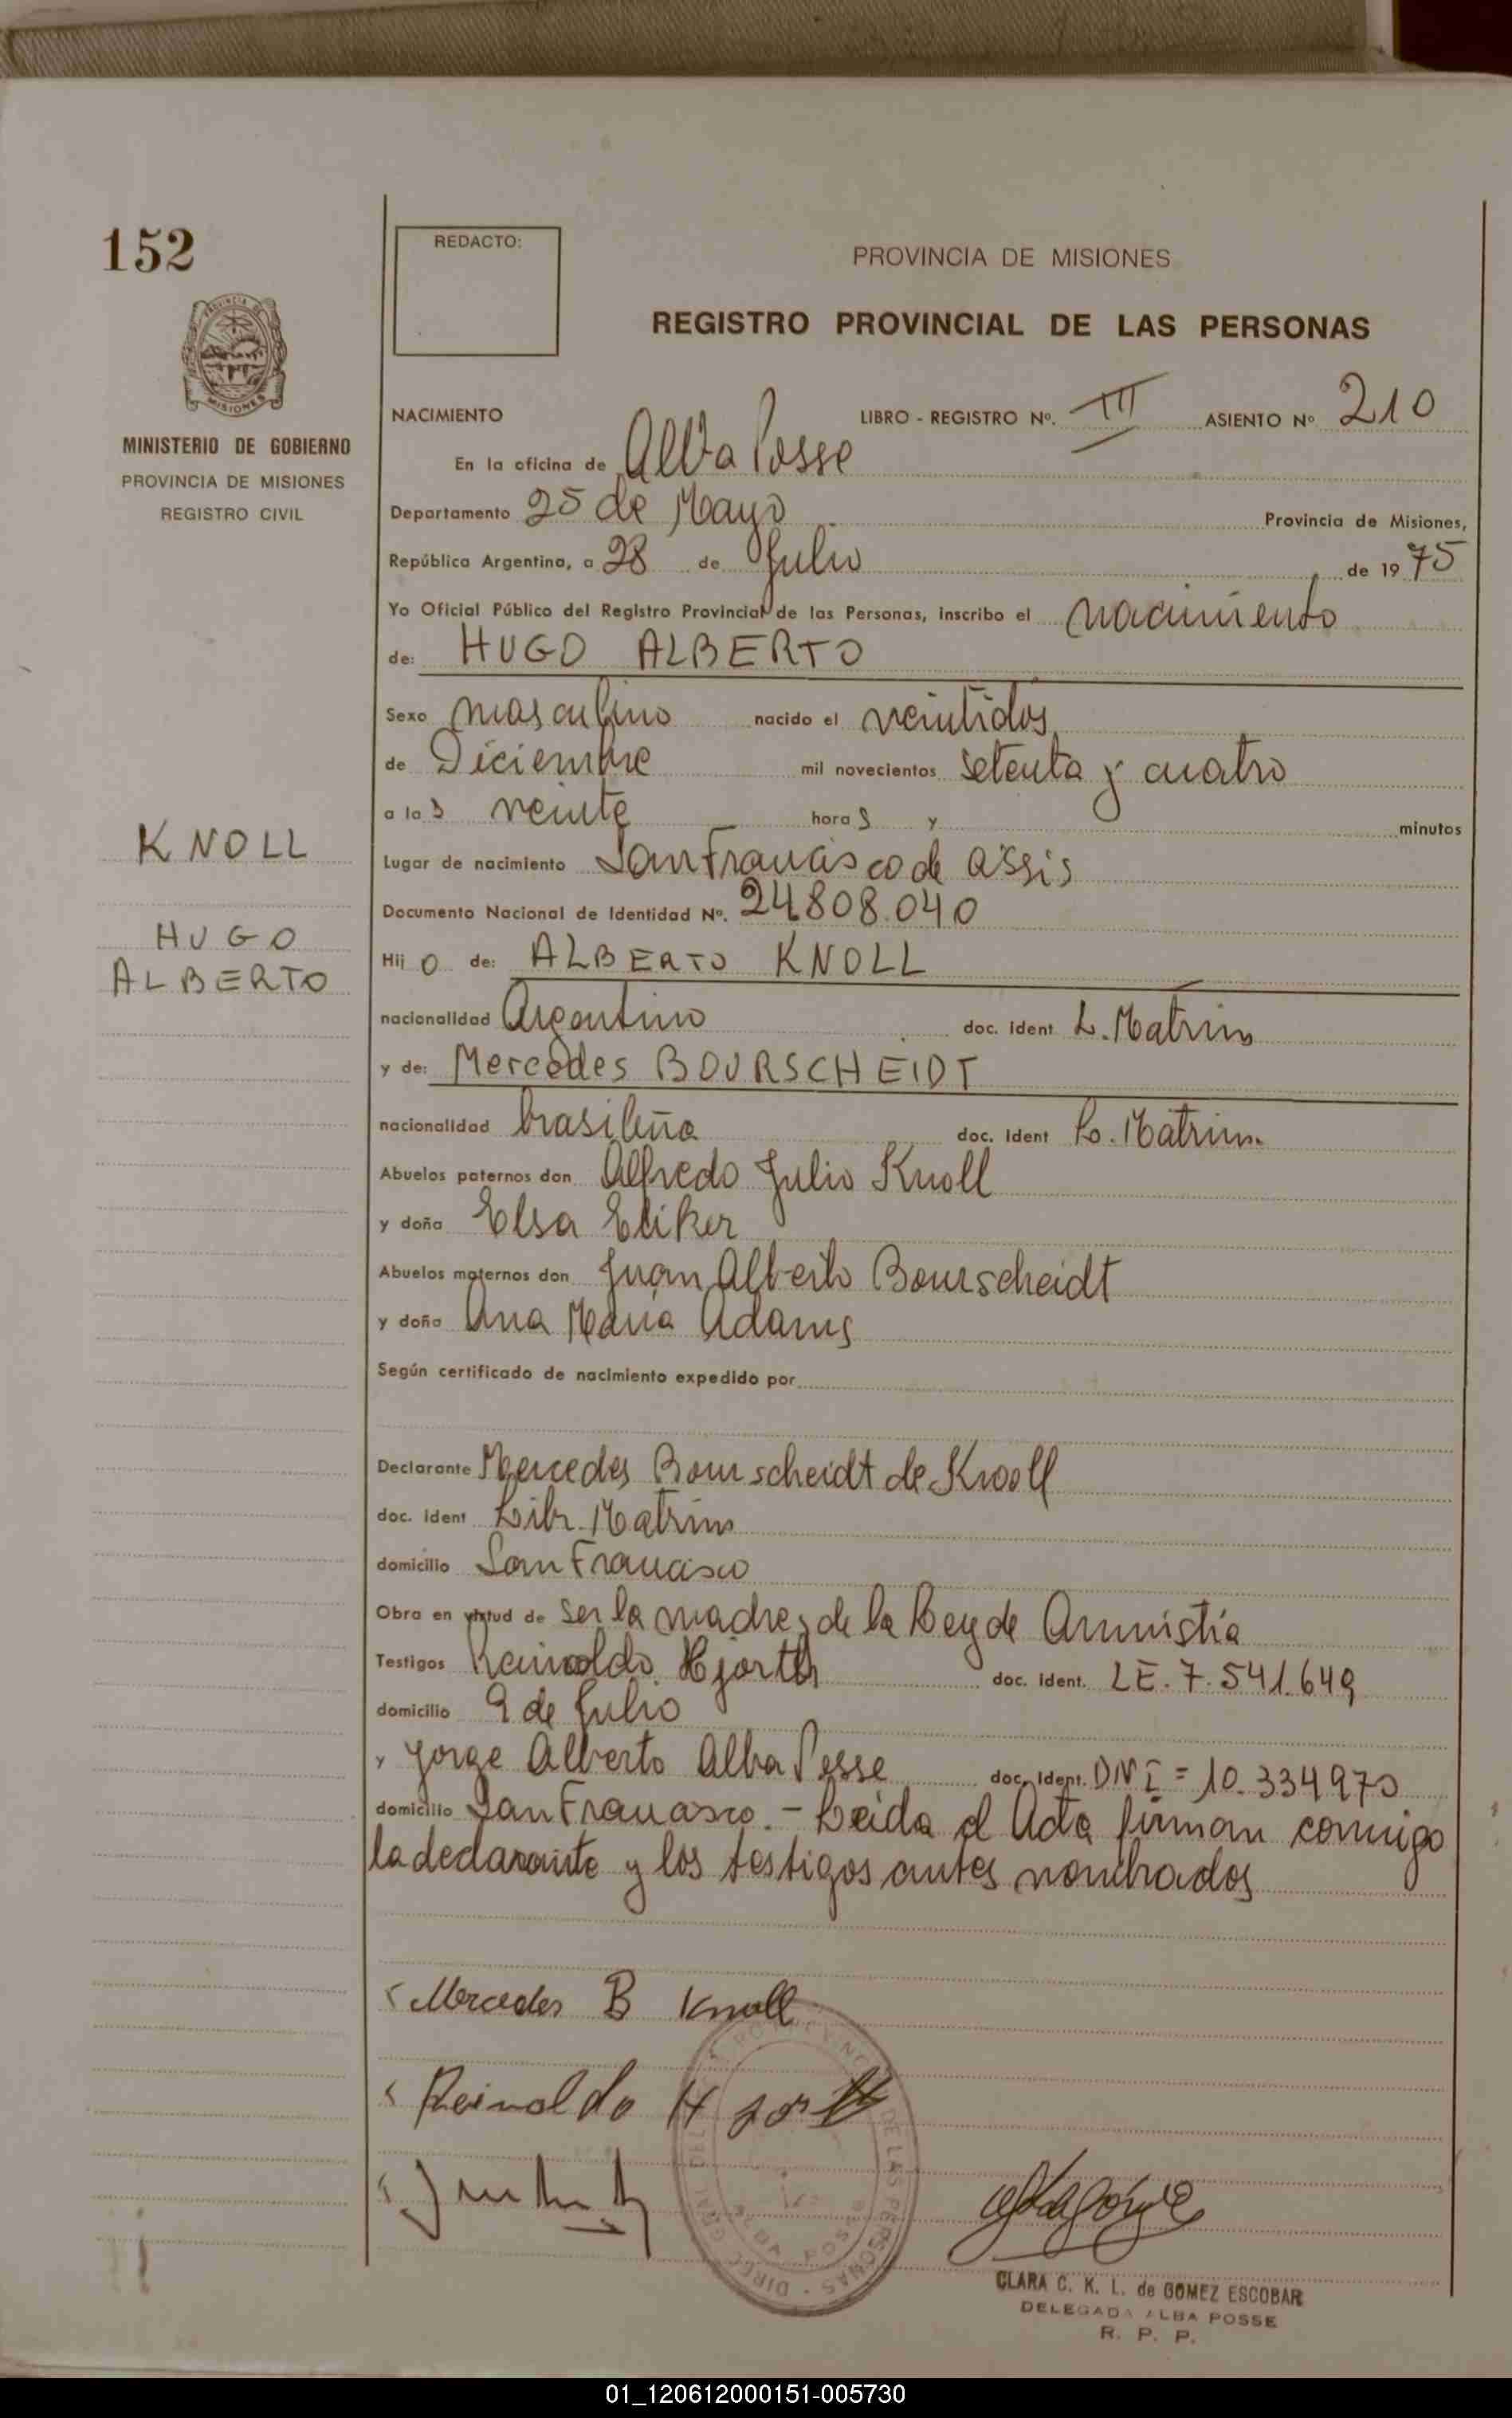 152
REDACTO:
PROVINCIA DE MISIONES
REGISTRO PROVINCIAL DE LAS PERSONAS
MISIONES
MINISTERIO DE GOBIERNO
PROVINCIA DE MISIONES
REGISTRO CIVIL
NACIMIENTO LIBRO - REGISTRO Nº. III ASIENTO Nº 210
En la oficina de Alba Posse
Departamento 25 de Mayo Provincia de Misiones,
República Argentina, a 28 de Julio de 1975
Yo Oficial Público del Registro Provincial de las Personas, inscribo el nacimiento
de: HUGO ALBERTO
Sexo masculino nacido el veintidos
de Diciembre mil novecientos setenta y cuatro
a las veinte horas y minutos
KNOLL
Lugar de nacimiento San Francisco de Assis
Documento Nacional de Identidad Nº. 24.808.040
HUGO
ALBERTO
Hijo de: ALBERTO KNOLL
nacionalidad Argentino doc. Ident L. Matrim
y de: Mercedes BOURSCHEIDT
nacionalidad brasileña doc. Ident L. Matrim.
Abuelos paternos don Alfredo Julio Knoll
y doña Elsa Eliker
Abuelos maternos don Juan Alberto Bourscheidt
y doña Ana Maria Adams
Según certificado de nacimiento expedido por
Declarante Mercedes Bourscheidt de Knoll
doc. Ident Libr. Matrim
domicilio San Francisco
Obra en virtud de ser la madre, de la Ley de Amnistía
Testigos Reinoldo Hjorth doc. Ident. LE. 7.541.649
domicilio 9 de Julio
y Jorge Alberto Alba Posse doc. Ident. DNI = 10.334970
domicilio San Francisco. - Leida el Acta firman conmigo
la declarante y los testigos antes nombrados
Mercedes B Knoll
Reinaldo Hjorth
DIREC. GRAL. DEL DE LAS PERSONAS
ALBA POSSE
CLARA C. K. L. de GOMEZ ESCOBAR
DELEGADA ALBA POSSE
R. P. P.
01_120612000151-005730